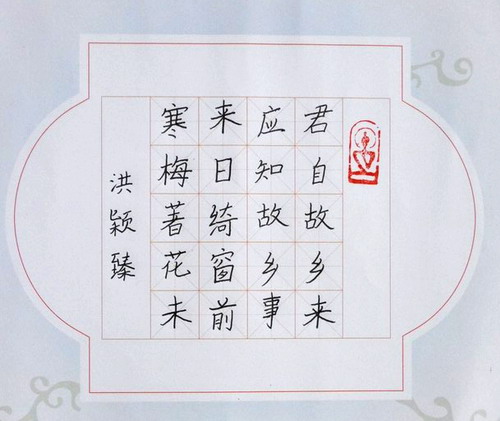 君自故乡来
应知故乡事
来日绮窗前
寒梅著花未
洪颖臻